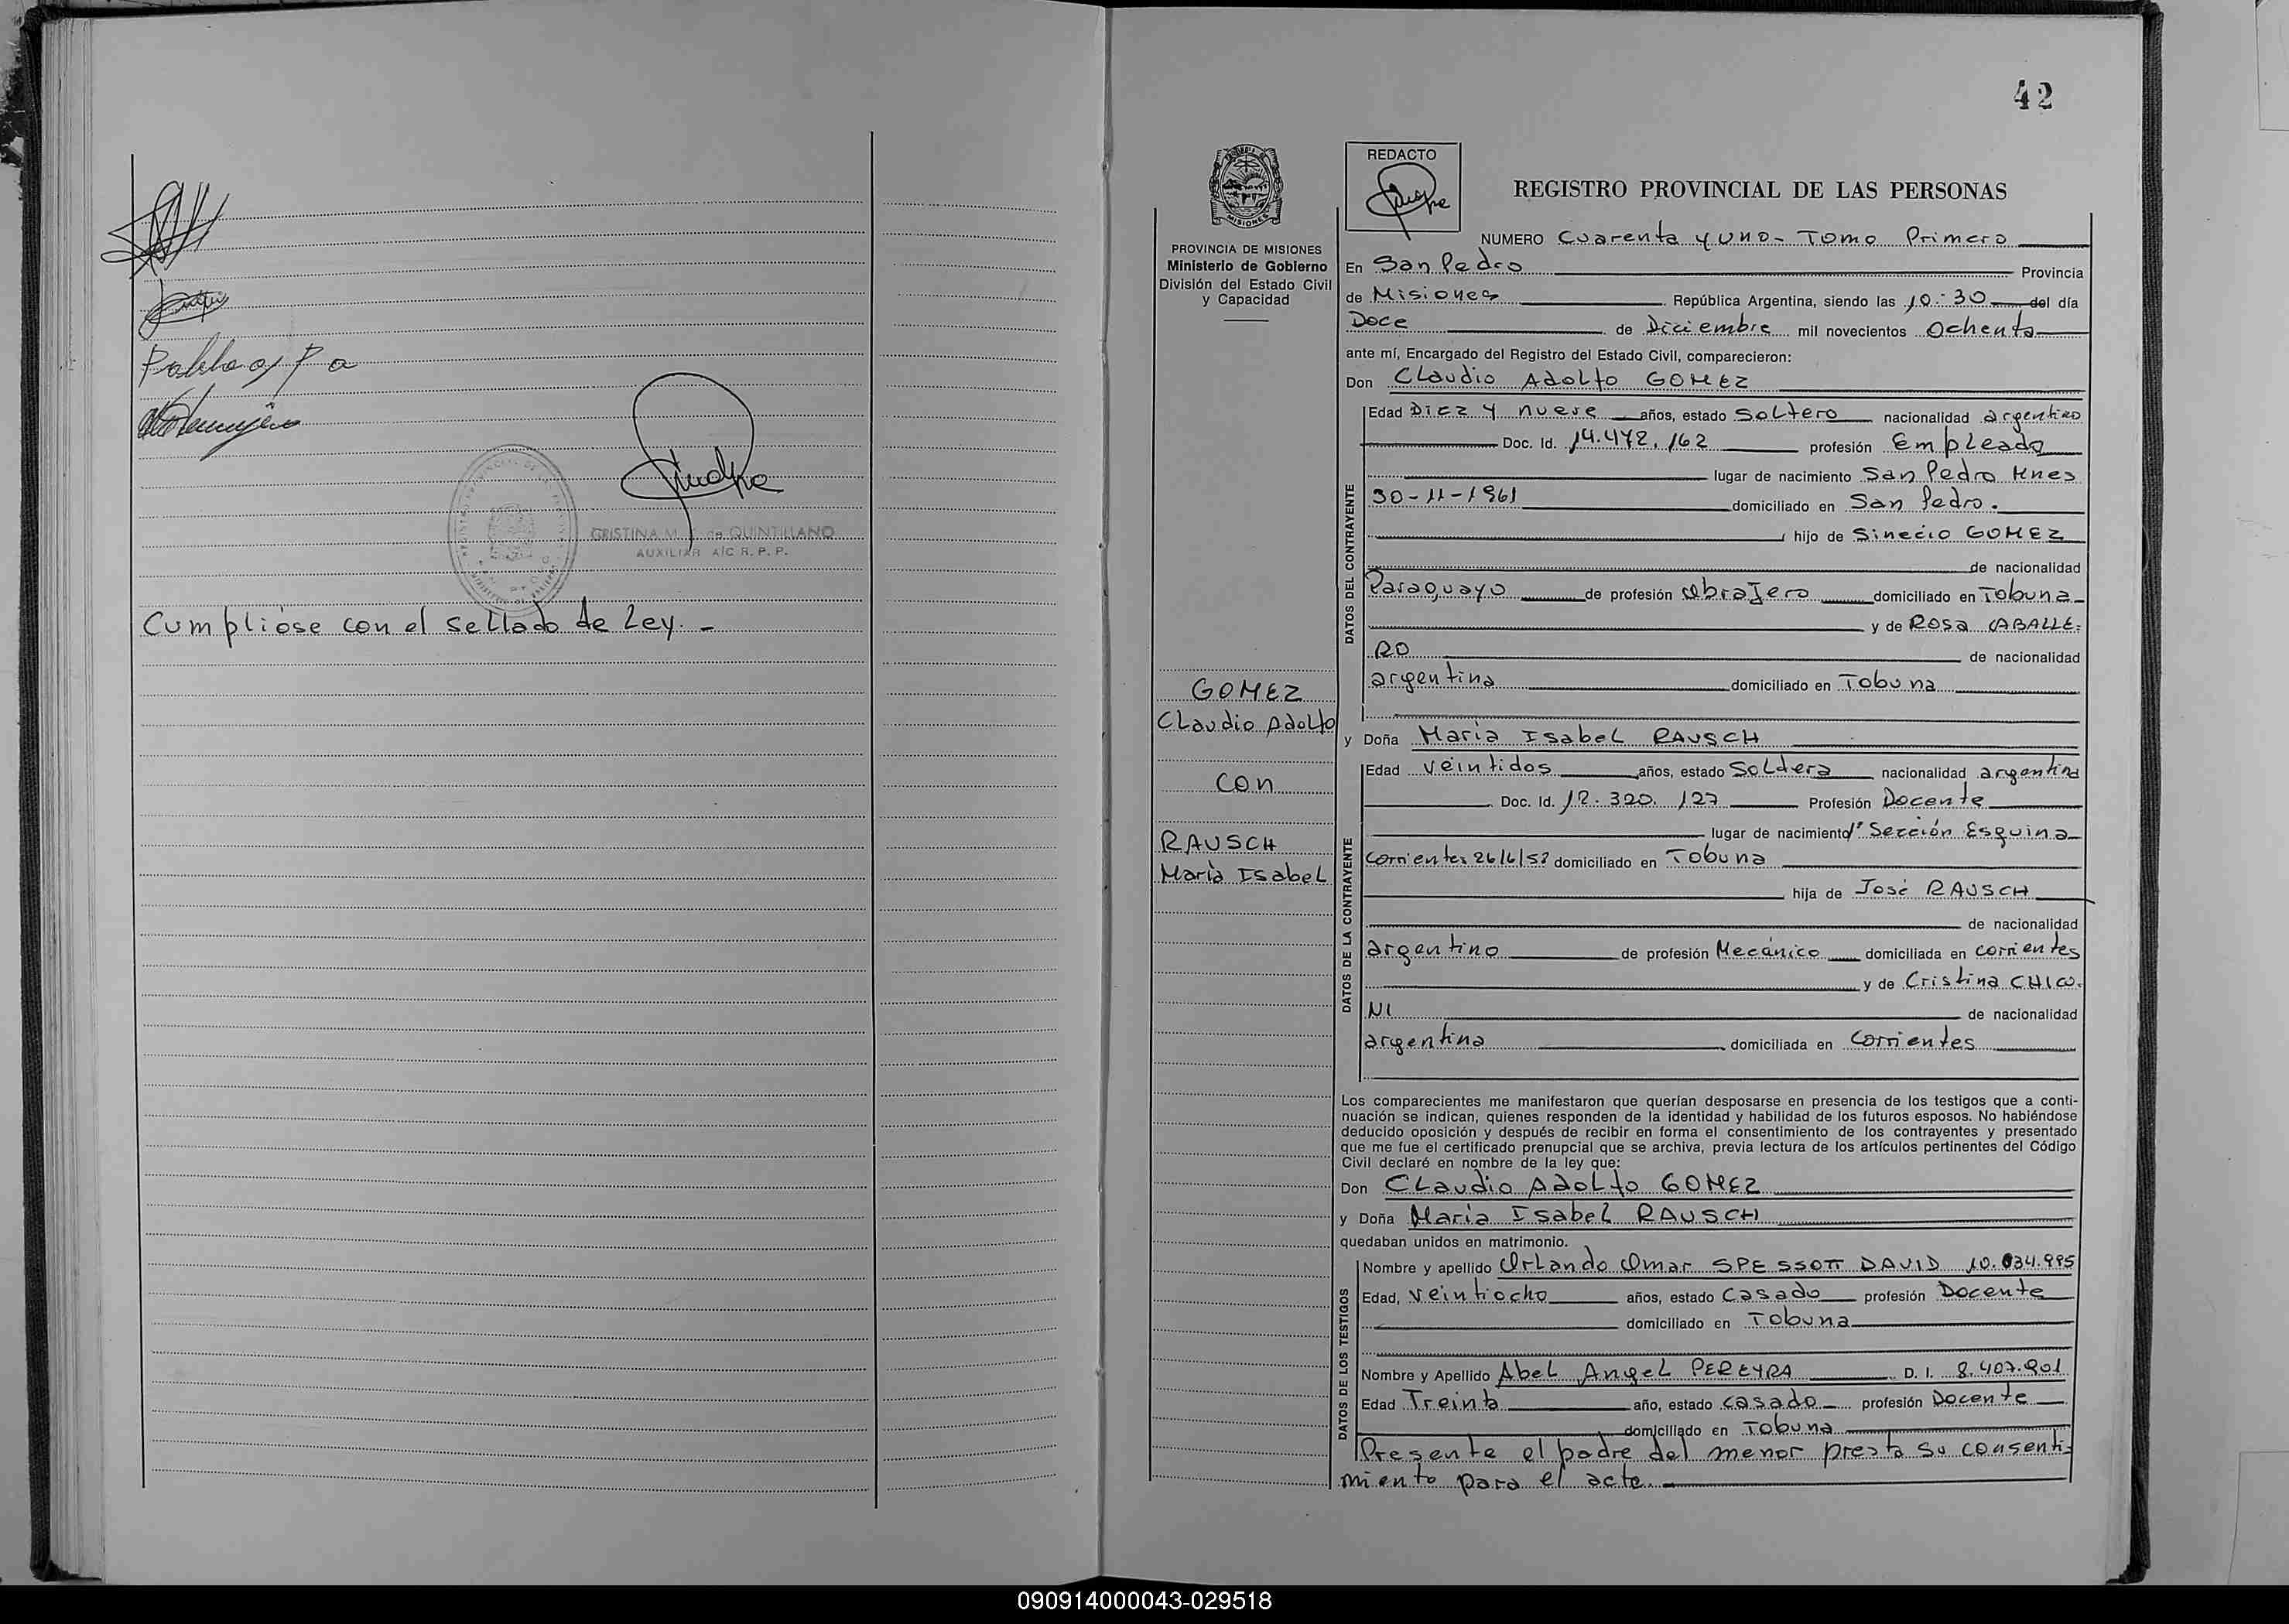 Cumplióse con el sellado de Ley. -
CRISTINA M. de QUINTILLANO
AUXILIAR A/C R. P. P.
42
REDACTO
REGISTRO PROVINCIAL DE LAS PERSONAS
MISIONES
PROVINCIA DE MISIONES
Ministerio de Gobierno
División del Estado Civil
y Capacidad
NUMERO Cuarenta y uno - Tomo Primero
En San Pedro Provincia
de Misiones República Argentina, siendo las 10:30 del día
Doce de Diciembre mil novecientos Ochenta
ante mí, Encargado del Registro del Estado Civil, comparecieron:
Don Claudio Adolfo GOMEZ
DATOS DEL CONTRAYENTE
Edad Diez y nueve años, estado Soltero nacionalidad argentino
Doc. Id. 14.472.162 profesión Empleado
lugar de nacimiento San Pedro Mnes
30-11-1961 domiciliado en San Pedro.
hijo de Sinecio GOMEZ
de nacionalidad
Paraguayo de profesión Obrajero domiciliado en Tobuna
y de Rosa CABALLE-
RO de nacionalidad
argentina domiciliado en Tobuna
GOMEZ
Claudio Adolfo
con
RAUSCH
María Isabel
y Doña María Isabel RAUSCH
DATOS DE LA CONTRAYENTE
Edad veintidos años, estado Soltera nacionalidad argentina
Doc. Id. 12.320.127 Profesión Docente
lugar de nacimiento 1ª Sección Esquina
Corrientes 26/6/58 domiciliado en Tobuna
hija de José RAUSCH
de nacionalidad
argentino de profesión Mecánico domiciliada en corrientes
y de Cristina CHICO-
NI de nacionalidad
argentina domiciliada en Corrientes
Los comparecientes me manifestaron que querían desposarse en presencia de los testigos que a conti-
nuación se indican, quienes responden de la identidad y habilidad de los futuros esposos. No habiéndose
deducido oposición y después de recibir en forma el consentimiento de los contrayentes y presentado
que me fue el certificado prenupcial que se archiva, previa lectura de los artículos pertinentes del Código
Civil declaré en nombre de la ley que:
Don Claudio Adolfo GOMEZ
y Doña María Isabel RAUSCH
quedaban unidos en matrimonio.
DATOS DE LOS TESTIGOS
Nombre y apellido Orlando Omar SPESSOTT DAVID 10.034.995
Edad, veintiocho años, estado Casado profesión Docente
domiciliado en Tobuna
Nombre y Apellido Abel Angel PEREYRA D. I. 8.407.901
Edad Treinta año, estado casado profesión Docente
domiciliado en Tobuna
Presente el padre del menor presta su consenti-
miento para el acto.
090914000043-029518